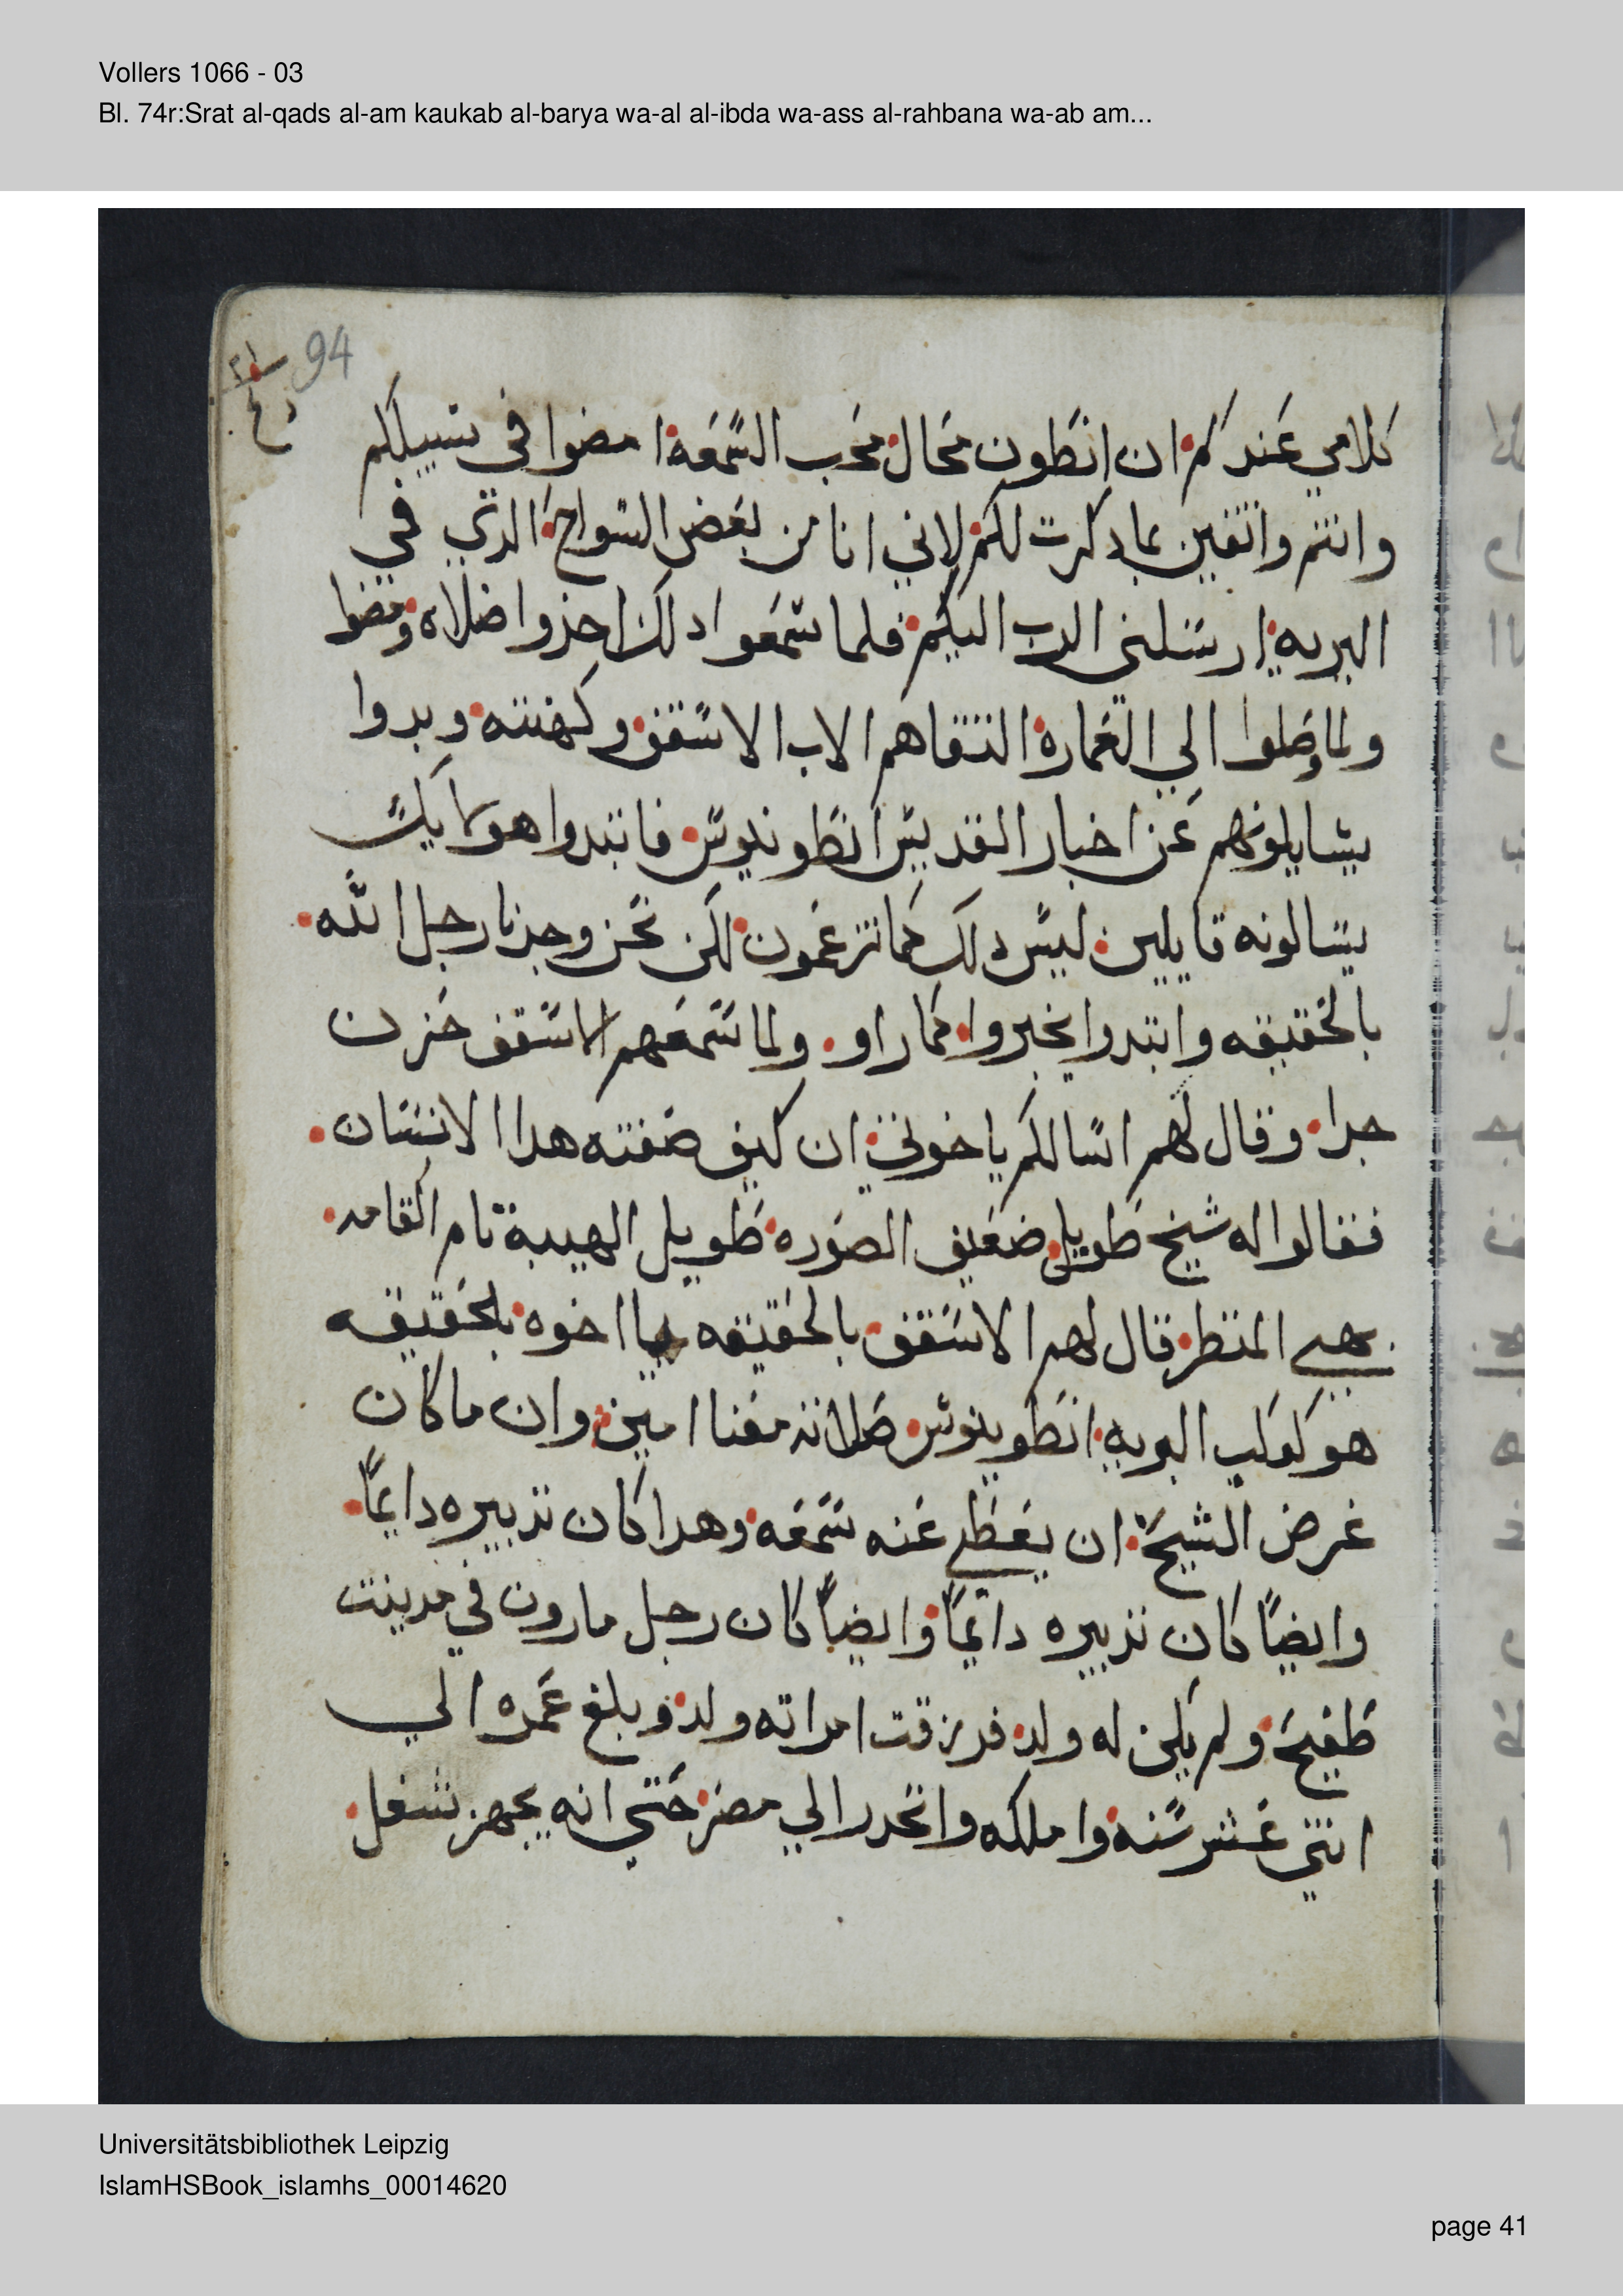 Vollers 1066 - 03
Bl. 74r:Srat al-qads al-am kaukab al-barya wa-al al-ibda wa-ass al-rahbana wa-ab am...
94
كلامي عندكم ان انطون محال محب السمعة امضوا في سبيلكم
وانتم واتقين بما دكرت لكم لاني انا من بعض السواح الدي في
البريه ارسلني الرب اليكم فلما سمعوا دلك اخذوا ضلاه ومضوا
ولما وصلوا الي العمارة التقاهم الاب الاسقف وكهنته وبدوا
يسايلونهم عن اخبار القديس انطونيوس فابتدوا هوكايك
يسالونه قايلين ليس دلك كما تزعمون لكن نحن وجدنا رجل الله
بالحقيقه وابتدوا يخبروا كما راو ولما سمعهم الاسقف حزن
جدا وقال لهم اسالكم ياخوتي ان كيف صفته هدا الانسان
فقالوا له شيخ طويل ضعيف الصوره طويل الهيبة تام القامه
بهي المنظر قال لهم الاسقف بالحقيقه يا اخوه بلحقيقه
هو كوكب البريه انطونيوس صلاته معنا امين وان ما كان
غرض الشيخ ان يعطي عنه سمعه وهدا كان تدبيره دايماً
وايضاً كان تدبيره دايماً وايضاً كان رجل مارون في مدينت
طفيح ولم يكن له ولد فرزقت امراته ولد وبلغ عمره الي
اتني عشر سنه واملكه وانحدر الي مصر حتي انه يجهز شغل
Universitätsbibliothek Leipzig
IslamHSBook_islamhs_00014620
page 41